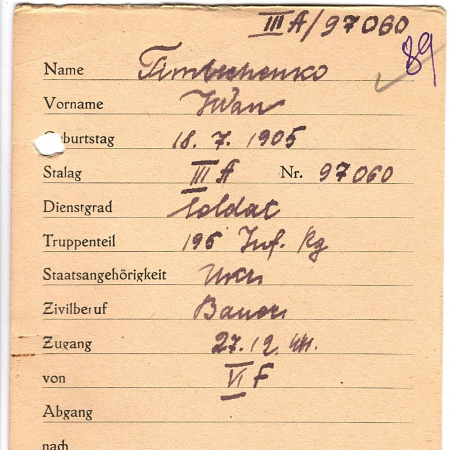 III A/97060
89
Name Timtschenko
Vorname Iwan
Geburtstag 18. 7. 1905
Stalag III A Nr. 97060
Dienstgrad Soldat
Truppenteil 195 Inf. Rg
Staatsangehörigkeit Ukr.
Zivilberuf Bauer
Zugang 27.12.44.
von VI F
Abgang
nach